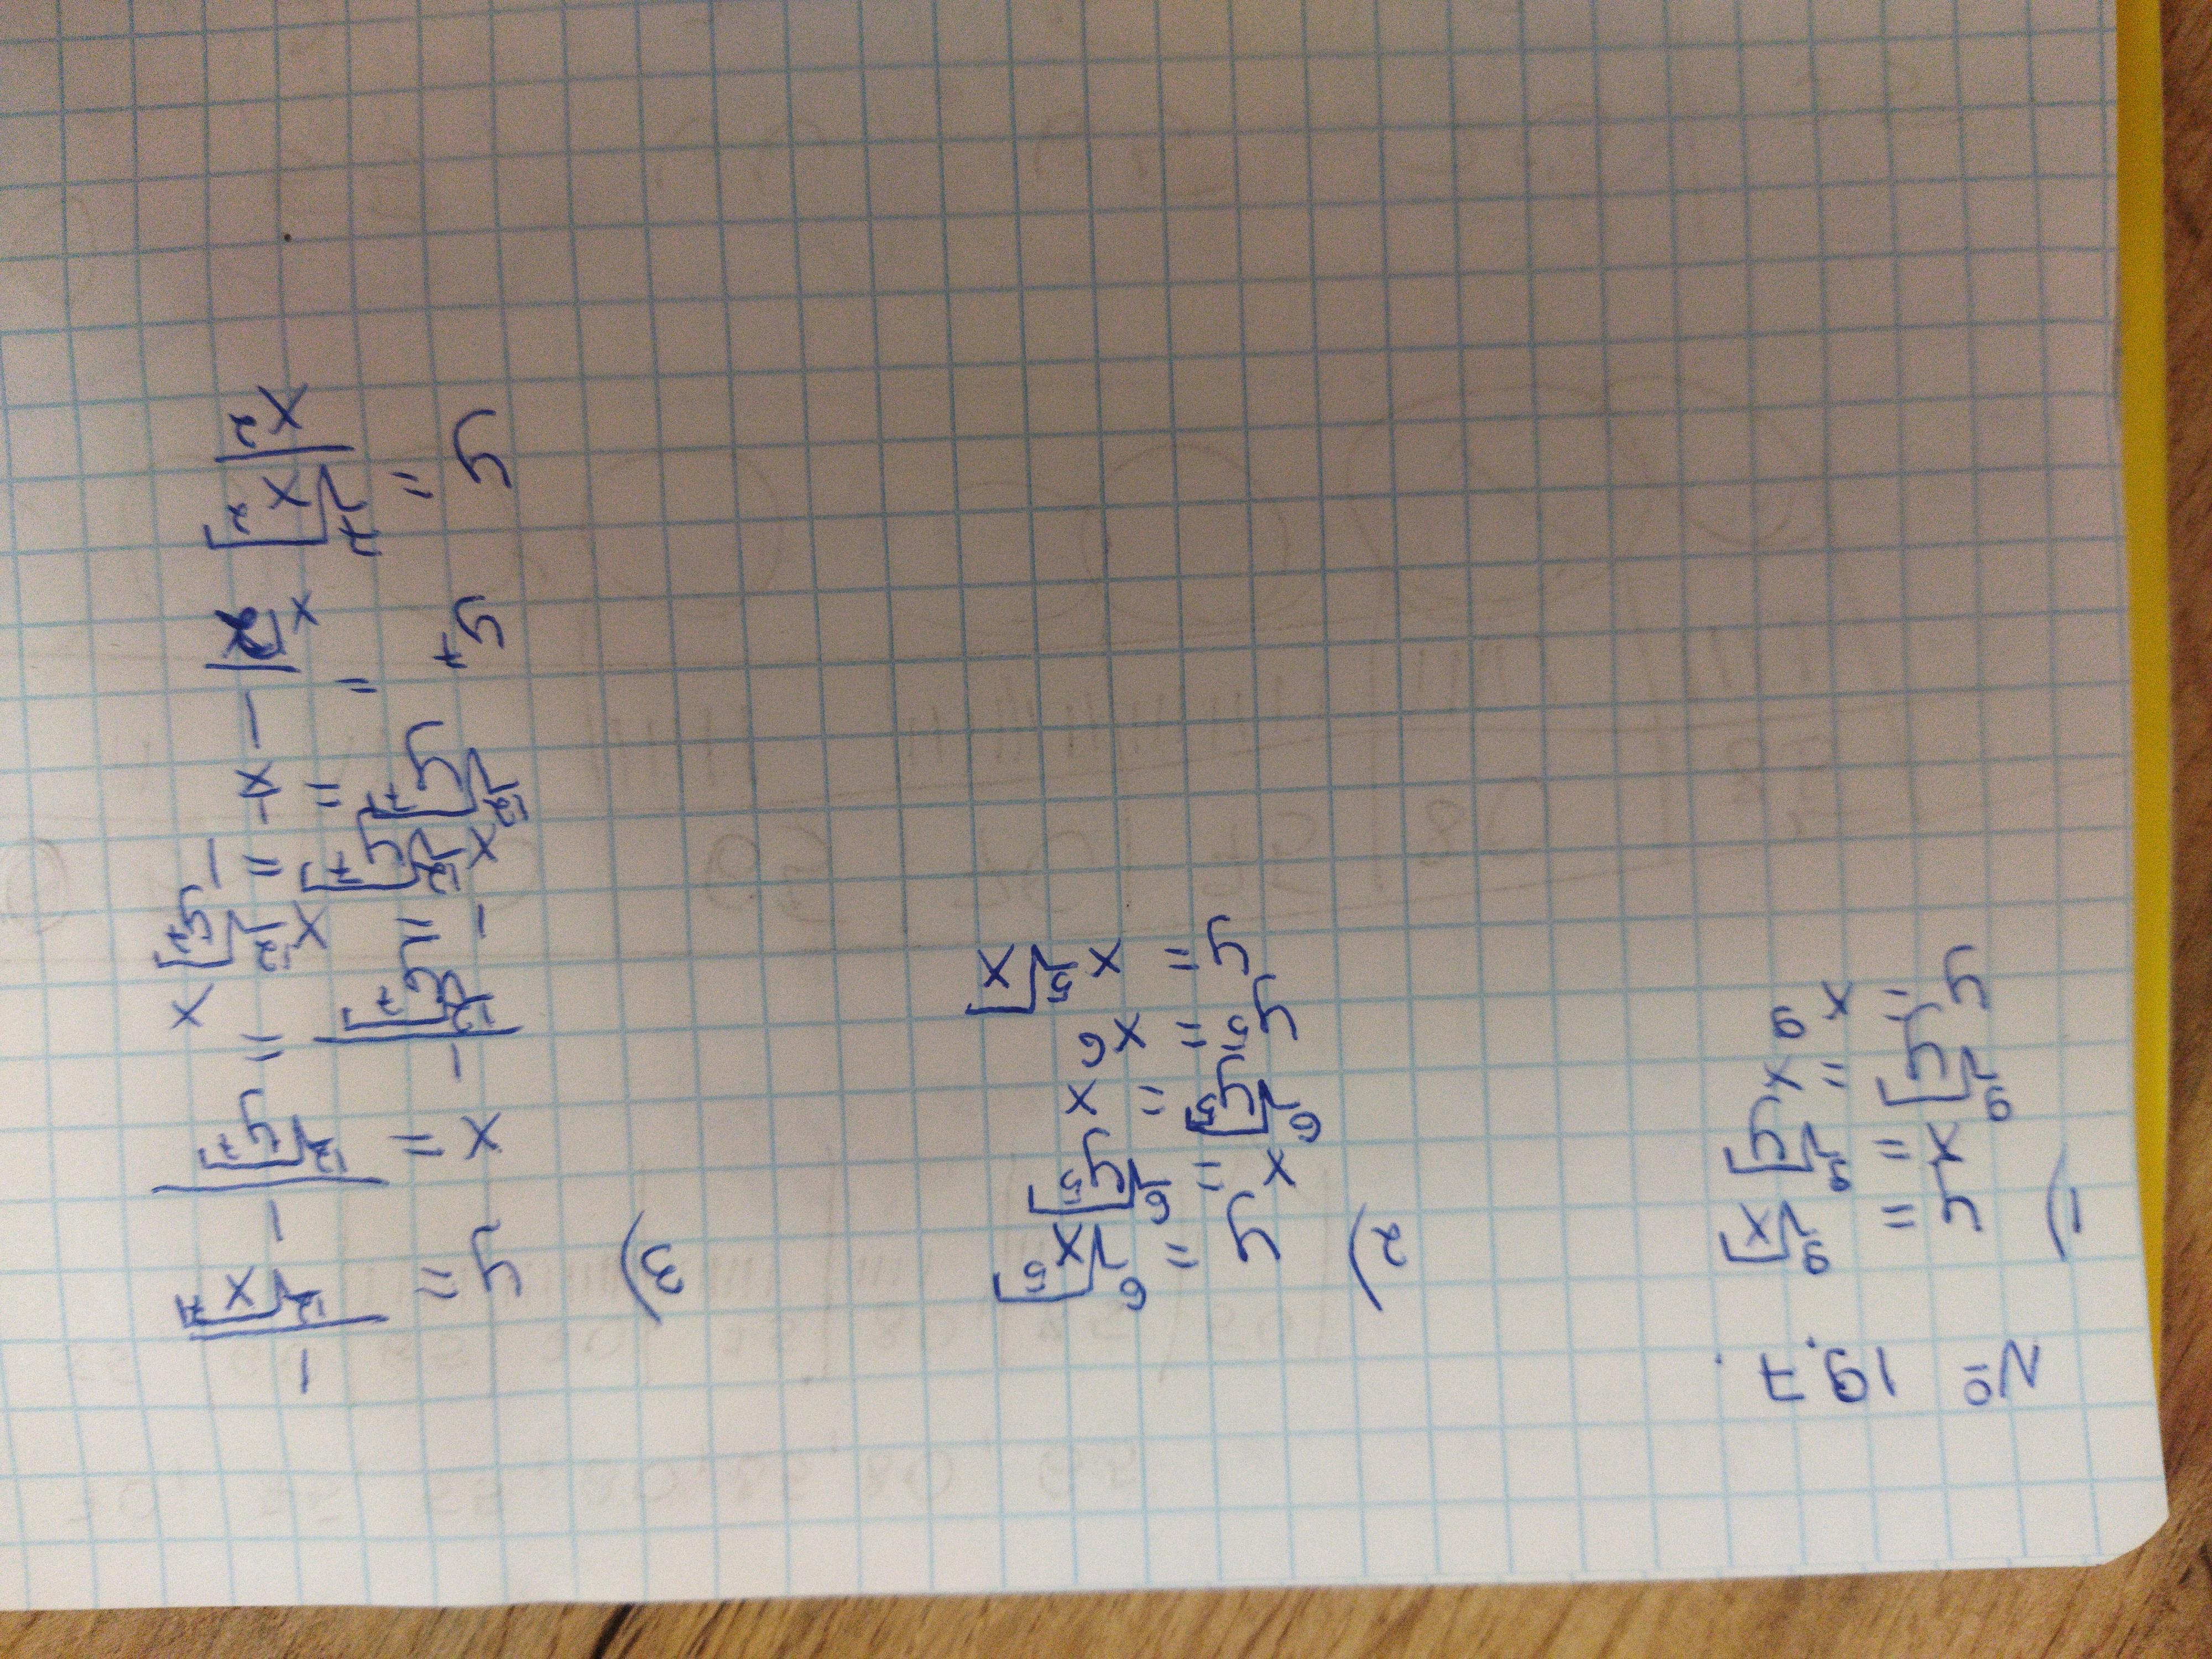 № 19.7.
1) y = ⁹√x
x = ⁹√y
⁹√y = x
y = x⁹
2) y = ⁶√x⁵
x = ⁶√y⁵
⁶√y⁵ = x
y⁵ = x⁶
y = x ⁵√x
3) y = 1/¹²√x⁷
x = 1/¹²√y⁷
1/¹²√y⁷ = x
1 = x ¹²√y⁷
x ¹²√y⁷ = 1
¹²√y⁷ = 1/x
y⁷ = 1/x¹²
y = ⁷√x²/x²